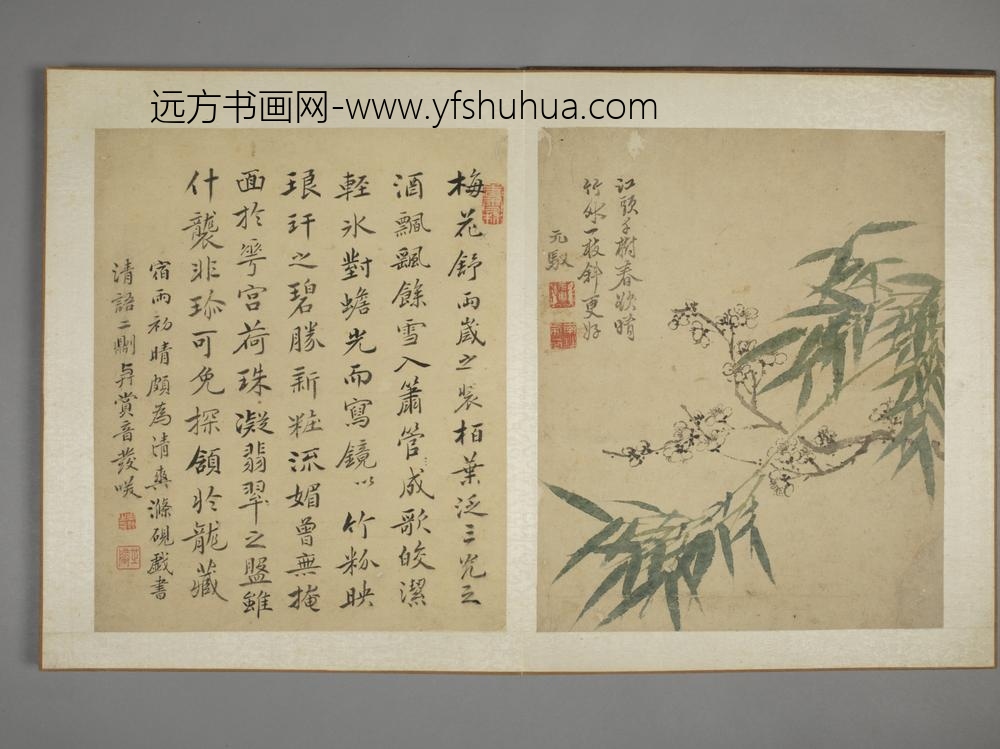 远方书画网-www.yfshuhua.com
江頭千樹春欲暗
竹外一枝斜更好
元馭
梅花舒兩歲之裝柏葉泛三光之
酒飄飄餘雪入簫管成歌皎潔
輕冰對蟾光而寫鏡以竹粉映
琅玕之碧勝新粧流媚曾無掩
面於雩宮荷珠凝翡翠之盤雖
什襲非珍可免探頷於龍藏
宿雨初晴頗為清爽滌硯戲書
清語二則
賞音發咲